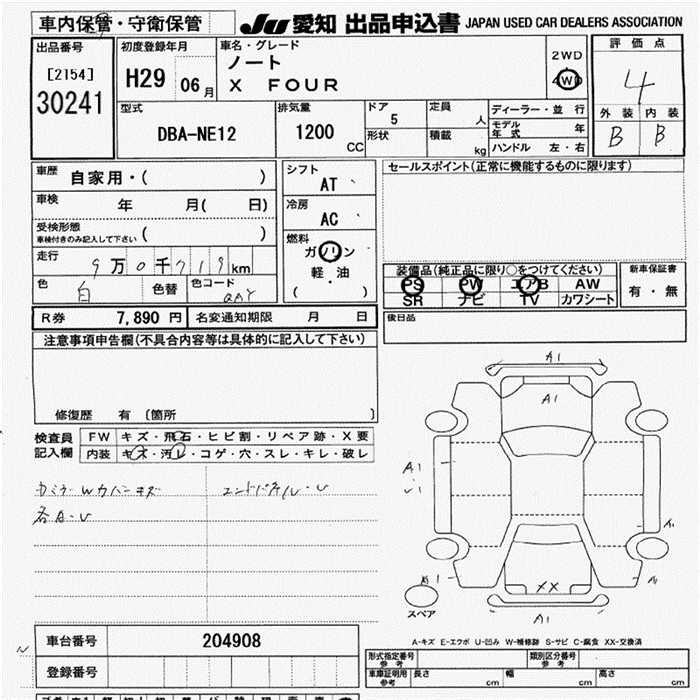 車内保管・守衛保管
JU 愛知 出品申込書 JAPAN USED CAR DEALERS ASSOCIATION
出品番号
[2154]
30241
初度登録年月
H29 06月
車名・グレード
ノート
X FOUR
2WD
4WD
評価点
4
外装 内装
B B
型式
DBA-NE12
排気量
1200 CC
ドア
5
形状
定員
人
積載
kg
ディーラー・並行
モデル年式 年
ハンドル 左・右
車歴
自家用・( )
車検
年 月( 日)
受検形態
車検付きのみ記入して下さい ( )
走行
9万0千719km
色
白
色替
色コード
QAY
シフト
AT
冷房
AC
燃料
ガソリン
軽・油
( )
セールスポイント(正常に機能するものに限ります)
装備品(純正品に限り○をつけてください)
PS PW エアB AW
SR ナビ TV カワシート
新車保証書
有・無
R券 7,890円
名変通知期限 月 日
後日品
注意事項申告欄(不具合内容等は具体的に記入して下さい)
修復歴 有 〔箇所 〕
検査員記入欄
FW キズ・飛石・ヒビ割・リペア跡・X要
内装 キズ・汚レ・コゲ・穴・スレ・キレ・破レ
各A・U
A1
A1
A1
A1
A1
XX
A1
スペア
A-キズ E-エクボ U-凹み W-補修跡 S-サビ C-腐食 XX-交換済
車台番号
204908
登録番号
型式指定番号
参考
類別区分番号
参考
車庫証明用
参考
長さ cm
幅 cm
高さ cm